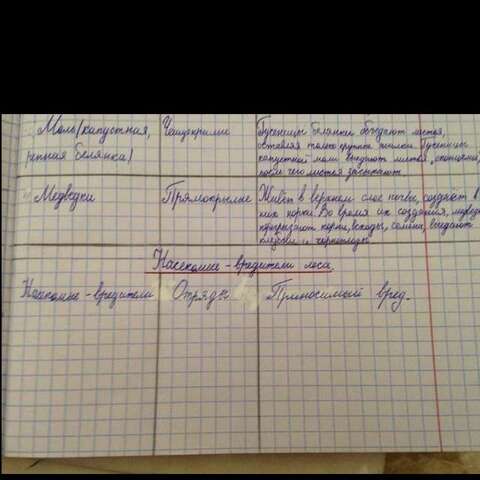 Моль (капустная, Чешуекрылые Гусеницы белянки объедают листья,
репная белянка) оставляя только крупные жилки. Гусеницы
капустной моли выедают листья,
после чего листья засыхают.
Медведки Прямокрылые Живёт в верхнем слое почвы, создаёт в
них норки. Во время их создания, медведки
подгрызают корни, всходы, семена, выедают
клубни и корнеплоды.
Насекомые - вредители леса.
Насекомые - вредители Отряды Приносимый вред.